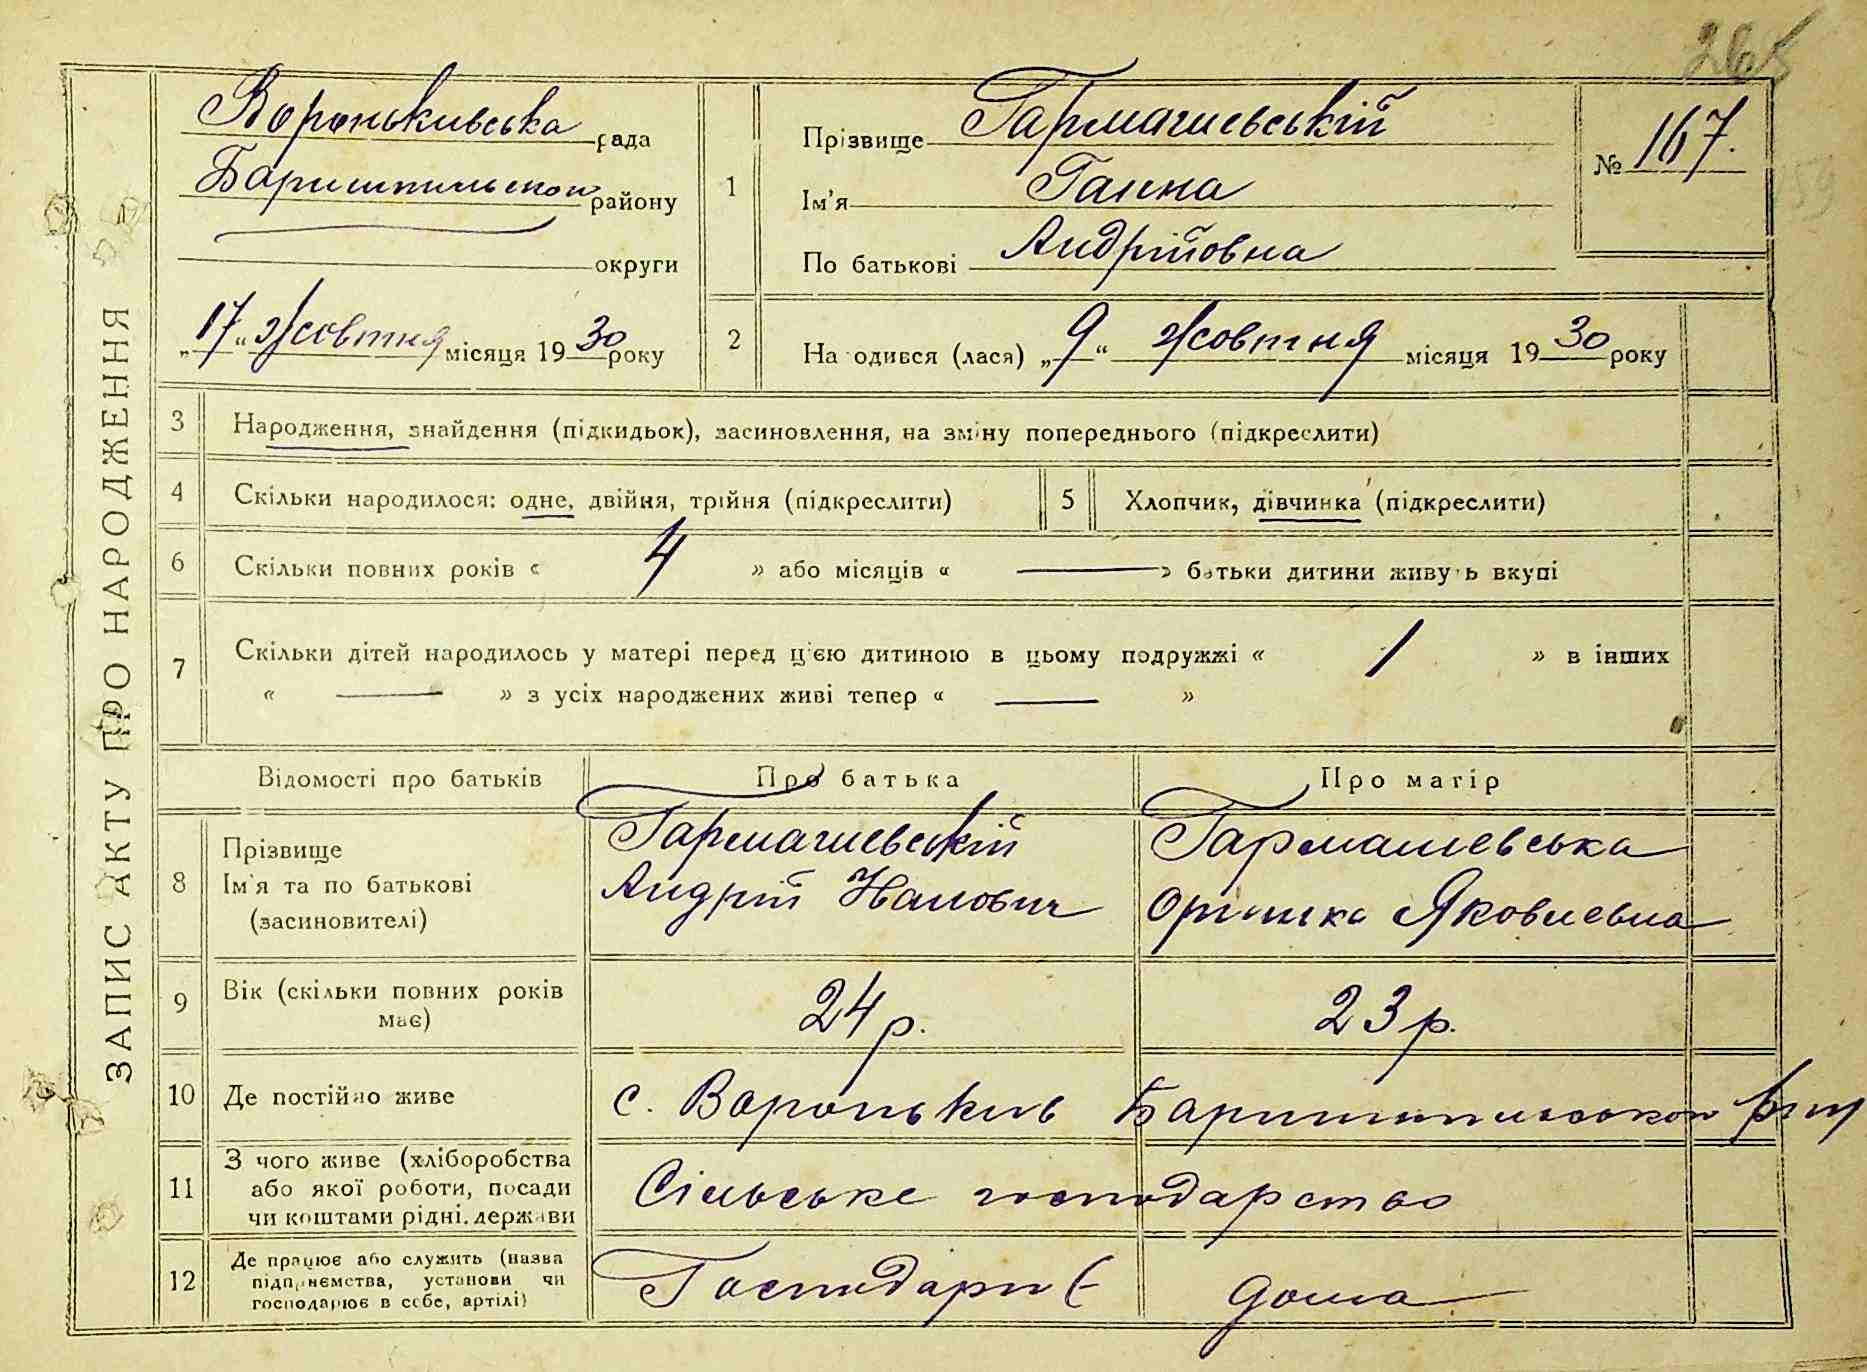 265
ЗАПИС АКТУ ПРО НАРОДЖЕННЯ
Вороньківська рада
Бориспильской району
округи
„17“ Жовтня місяця 1930 року
1
Прізвище Гармашевській
Ім'я Ганна
По батькові Андрійовна
№ 167.
159
2
На одився (лася) „9“ Жовтня місяця 1930 року
3 Народження, знайдення (підкидьок), засиновлення, на зміну попереднього (підкреслити)
4 Скільки народилося: одне, двійня, трійня (підкреслити)
5 Хлопчик, дівчинка (підкреслити)
6 Скільки повних років « 4 » або місяців « — » батьки дитини живуть вкупі
7 Скільки дітей народилось у матері перед цією дитиною в цьому подружжі « 1 » в інших
« — » з усіх народжених живі тепер « — »
Відомості про батьків Про батька Про матір
8 Прізвище
Ім'я та по батькові
(засиновителі)
Гармашевській
Андрій Іванович
Гармашевська
Оришка Яковлевна
9 Вік (скільки повних років
має)
24 р. 23 р.
10 Де постійно живе с. Вороньків Баришпильской
11 З чого живе (хліборобства
або якої роботи, посади
чи коштами рідні, держави
Сільське господарство
12 Де працює або служить (назва
підприємства, установи чи
господарює в себе, артілі)
Господарює дома